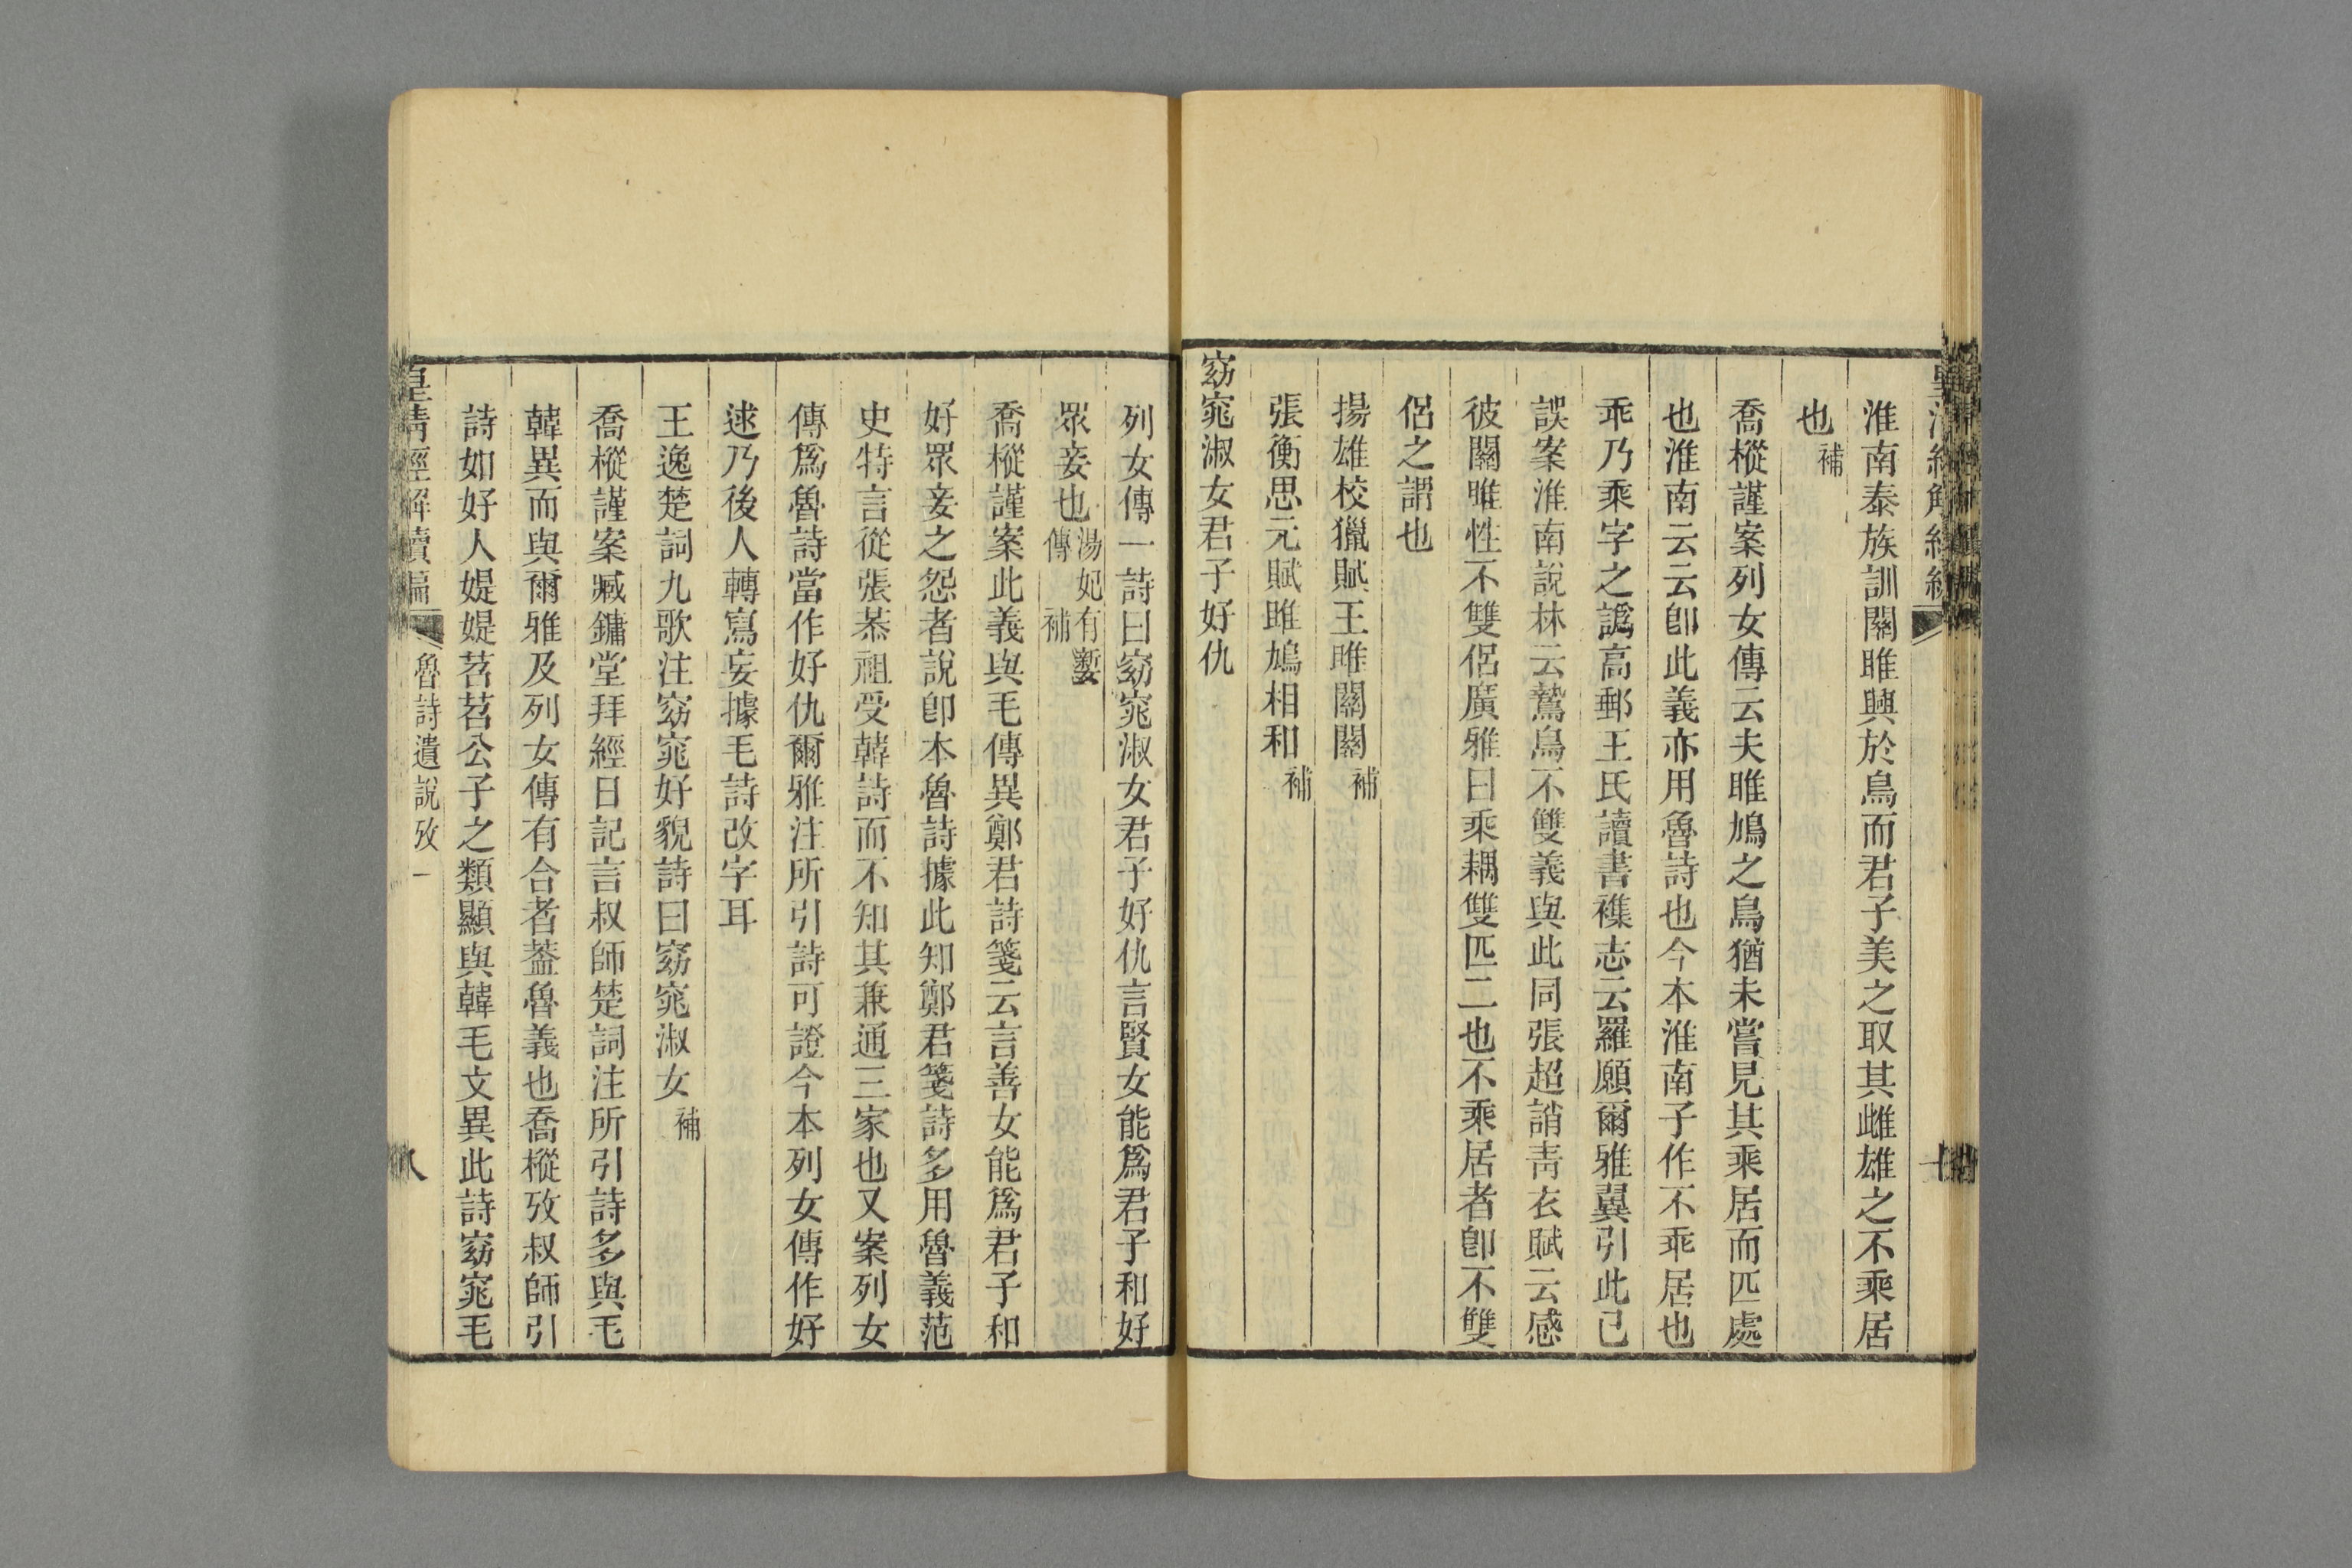 淮南泰族訓關雎興於鳥而君子美之取其雌雄之不乘居
也補
喬樅謹案列女傳云夫雎鳩之鳥猶未嘗見其乘居而匹處
也淮南云云卽此義亦用魯詩也今本淮南子作不乖居也
乖乃乘字之譌高郵王氏讀書襍志云羅願爾雅翼引此已
誤案淮南說林云鷙鳥不雙義與此同張超誚靑衣賦云感
彼關雎性不雙侶廣雅曰乘耦雙匹二也不乘居者卽不雙
侶之謂也
揚雄校獵賦王雎關關補
張衡思元賦雎鳩相和補
窈窕淑女君子好仇
列女傳一詩曰窈窕淑女君子好仇言賢女能爲君子和好
眾妾也湯妃有㜪傳補
喬樅謹案此義與毛傳異鄭君詩箋云言善女能爲君子和
好眾妾之怨者說卽本魯詩據此知鄭君箋詩多用魯義范
史特言從張恭祖受韓詩而不知其兼通三家也又案列女
傳爲魯詩當作好仇爾雅注所引詩可證今本列女傳作好
逑乃後人轉寫妄據毛詩改字耳
王逸楚詞九歌注窈窕好貌詩曰窈窕淑女補
喬樅謹案臧鏞堂拜經日記言叔師楚詞注所引詩多與毛
韓異而與爾雅及列女傳有合者葢魯義也喬樅攷叔師引
詩如好人媞媞苕苕公子之類顯與韓毛文異此詩窈窕毛
皇淸經解續編 魯詩遺說攷一 八